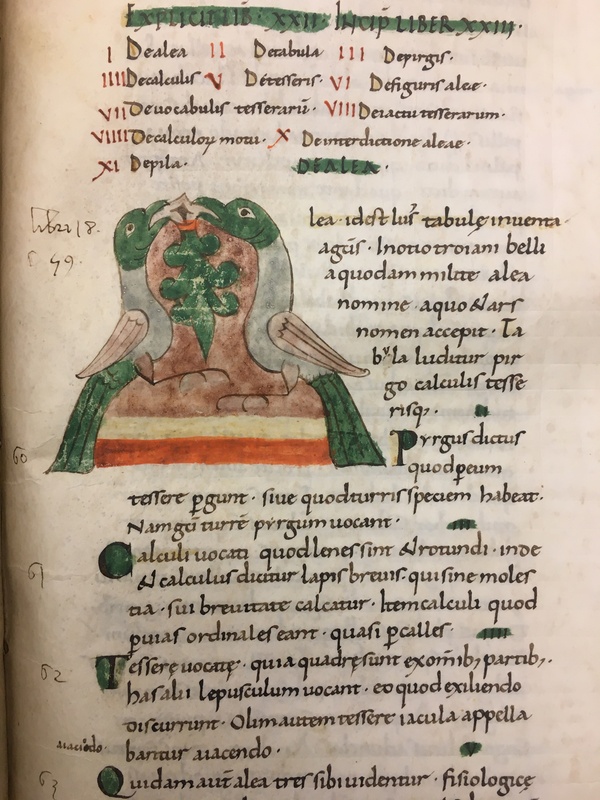 EXPLICIT LIB XXII · INCIP LIBER XXIII ·
I De alea II De tabula III De pirgis ·
IIII De calculis V De tesseris · VI De figuris alee ·
VII De vocabulis tesserarū · VIII De iactu tesserarum ·
VIIII De calculoꝝ motu · X De interdictione aleae ·
XI De pila · DE ALEA ·
lea · id est lus' tabulę inventa
agcis · In otio troiani belli
a quodam milite alea
nomine · a quo & ars
nomen accepit · Ta
bula luditur pir
go calculis tesse
risq; · II
Pyrgus dictus
quod ꝑ eum
tessere ꝑgunt · sive quod turris speciem habeat ·
Nam gci turrē pyrgum vocant · III
Calculi vocati quod lenes sint & rotundi · inde
& calculus dicitur lapis brevis · qui sine moles
tia · sui brevitate calcatur · Item calculi quod
ꝑ vias ordinales eant · quasi ꝑ calles · IIII
Tesserę vocatę · quia quadrę sunt ex omĩbꝫ partibꝫ ·
has alii lepusculum vocant · eo quod exiliendo
discurrunt · Olim autem tessere iacula appella
bantur a iaciendo · V
Quidam aut alea tres sibi videntur · fisiologicę
libri 18.
c 59.
60
61
62
a iaciēdo ·
63